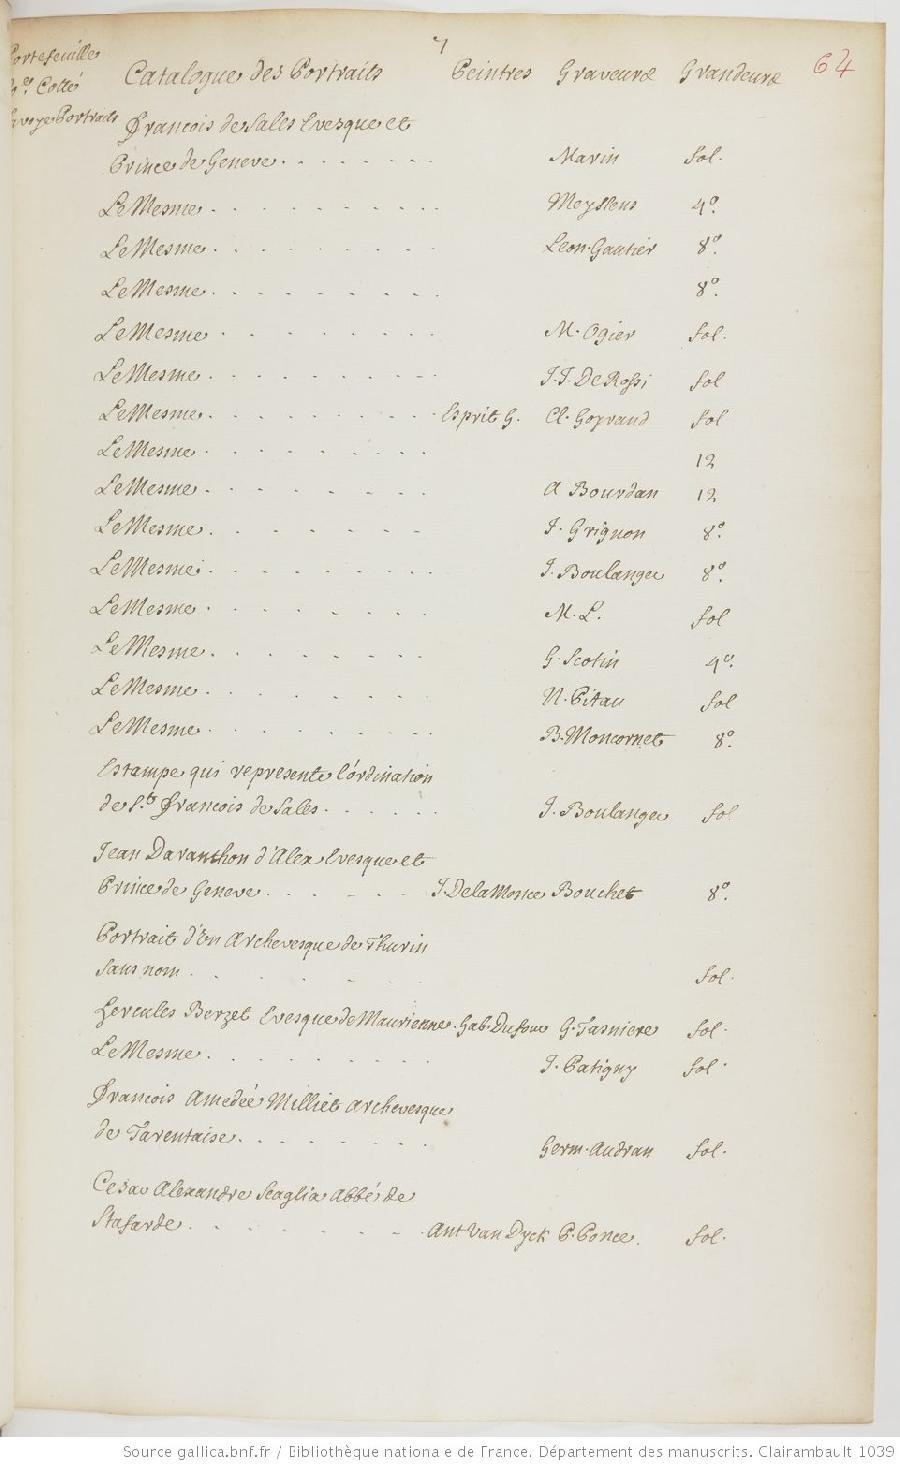 7
64
Portefeuille
Cotté
Savoye Portraits
Catalogue des Portraits Peintres Graveurs Grandeurs
François de Sales Evesque et
Prince de Geneve . . . . . . . Marin fol.
Le Mesme . . . . . . . . . . . Meyssens 4º.
Le Mesme . . . . . . . . . . Leon. Gautier 8º.
Le Mesme . . . . . . . . . . 8º.
Le Mesme . . . . . . . . . M. Ogier fol.
Le Mesme . . . . . . . . . . J. J. De Rossi fol
Le Mesme . . . . . . . . . . Esprit G. Cl. Goyrand fol
Le Mesme . . . . . . . . . 12
Le Mesme . . . . . . . . . A Bourdan 12
Le Mesme . . . . . . . . J. Grignon 8º.
Le Mesme . . . . . . . . . J. Boulanger 8º.
Le Mesme . . . . . . . . M. L. fol
Le Mesme . . . . . . . . G. Scotin 4º.
Le Mesme . . . . . . . N. Pitau fol
Le Mesme . . . . . . . . . B. Moncornet 8º.
Estampe qui represente l'ordination
de St. François de Sales . . . . . . J. Boulanger fol
Jean Daranthon d'Alex Evesque et
Prince de Geneve . . . . . . . J. Delamonce Bouchet 8º.
Portrait d'Un Archevesque de Thurin
sans nom . . . . . . . fol.
Hercules Berzet Evesque de Maurienne . Gab. Dufour G. Tasniere fol.
Le Mesme . . . . . . . . . J. Patigny fol.
François Amedée Milliet Archevesque
de Tarentaise . . . . . . . Germ. Audran fol.
Cesar Alexandre Scaglia Abbé de
Stafarde . . . . . . . Ant Van Dyck P. Ponce. fol.
Source gallica.bnf.fr / Bibliothèque nationale de France. Département des manuscrits. Clairambault 1039